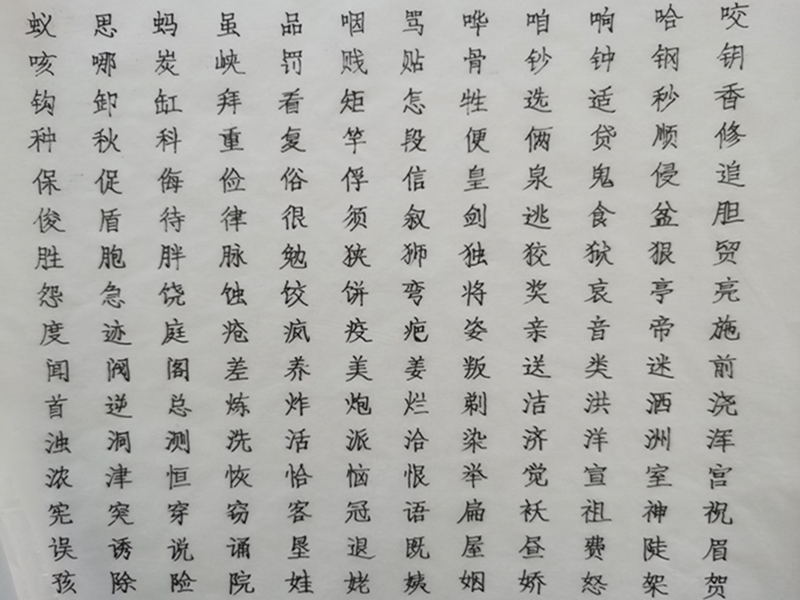 蚁 思 蚂 虽 品 咽 骂 哗 咱 响 哈 咬
咳 哪 炭 峡 罚 贱 贴 骨 钞 钟 钢 钥
钩 卸 缸 拜 看 矩 怎 牲 选 适 秒 香
种 秋 科 重 复 竿 段 便 俩 贷 顺 修
保 促 侮 俭 俗 俘 信 皇 泉 鬼 侵 追
俊 盾 待 律 很 须 叙 剑 逃 食 盆 胆
胜 胞 胖 脉 勉 狭 狮 独 狡 狱 狠 贸
怨 急 饶 蚀 饺 饼 弯 将 奖 哀 亭 亮
度 迹 庭 疮 疯 疫 疤 姿 亲 音 帝 施
闻 阀 阁 差 养 美 姜 叛 送 类 迷 前
首 逆 总 炼 炸 炮 烂 剃 洁 洪 洒 浇
浊 洞 测 洗 活 派 洽 染 济 洋 洲 浑
浓 津 恒 恢 恰 恼 恨 举 觉 宣 室 宫
宪 突 穿 窃 客 冠 语 扁 袄 祖 神 祝
误 诱 说 诵 垦 退 既 屋 昼 费 陡 眉
孩 除 险 院 娃 姥 姨 姻 娇 怒 架 贺